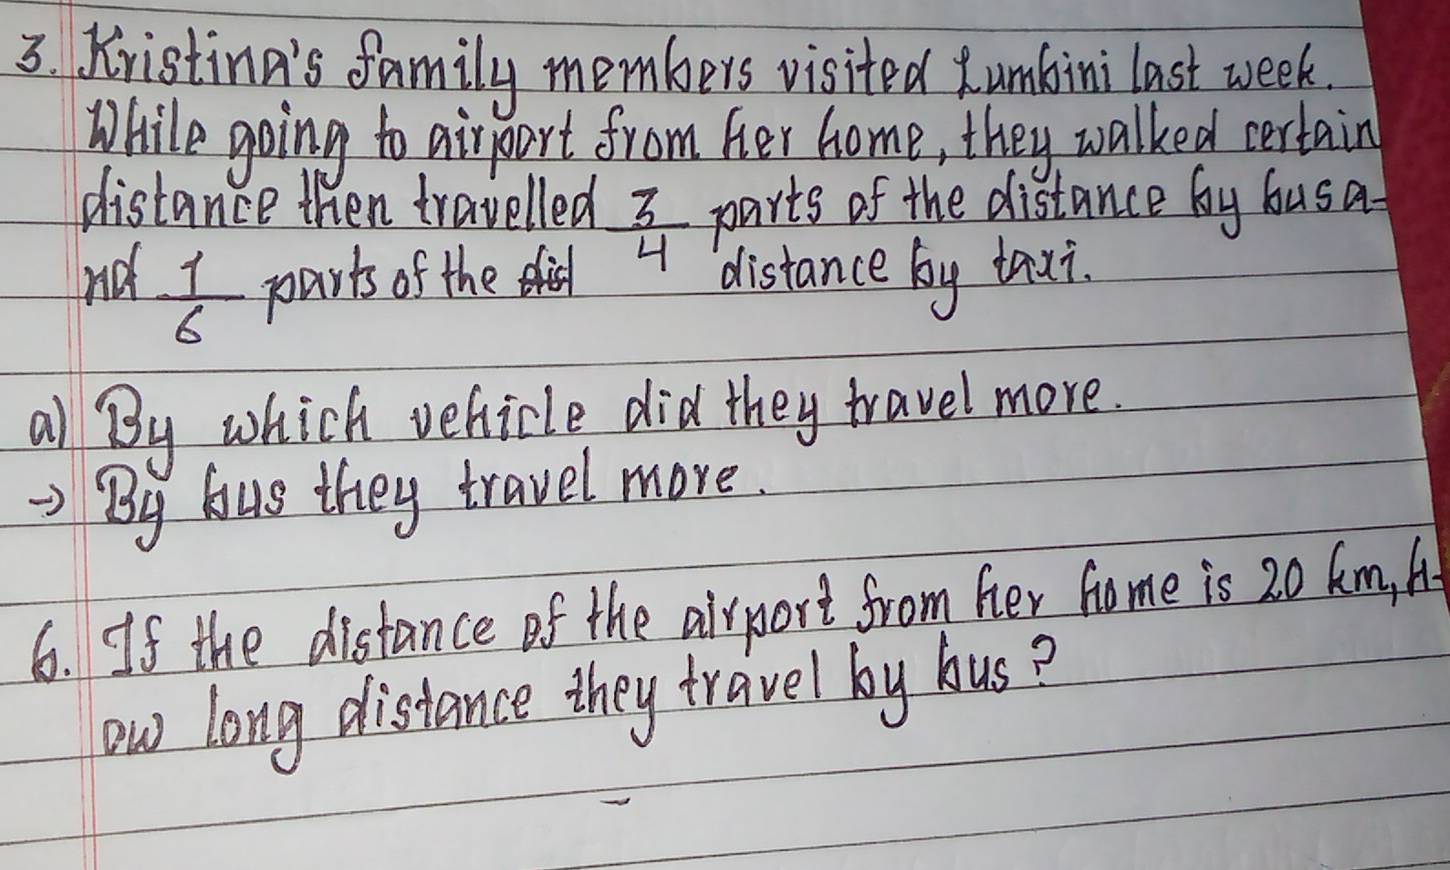 3. Kristina's family members visited Lumbini last week.
While going to airport from her home, they walked certain
distance then travelled 3/4 parts of the distance by bus a-
nd 1/6 parts of the distance by taxi.
a) By which vehicle did they travel more.
→ By bus they travel more.
6. If the distance of the airport from her home is 20 km, h-
ow long distance they travel by bus?